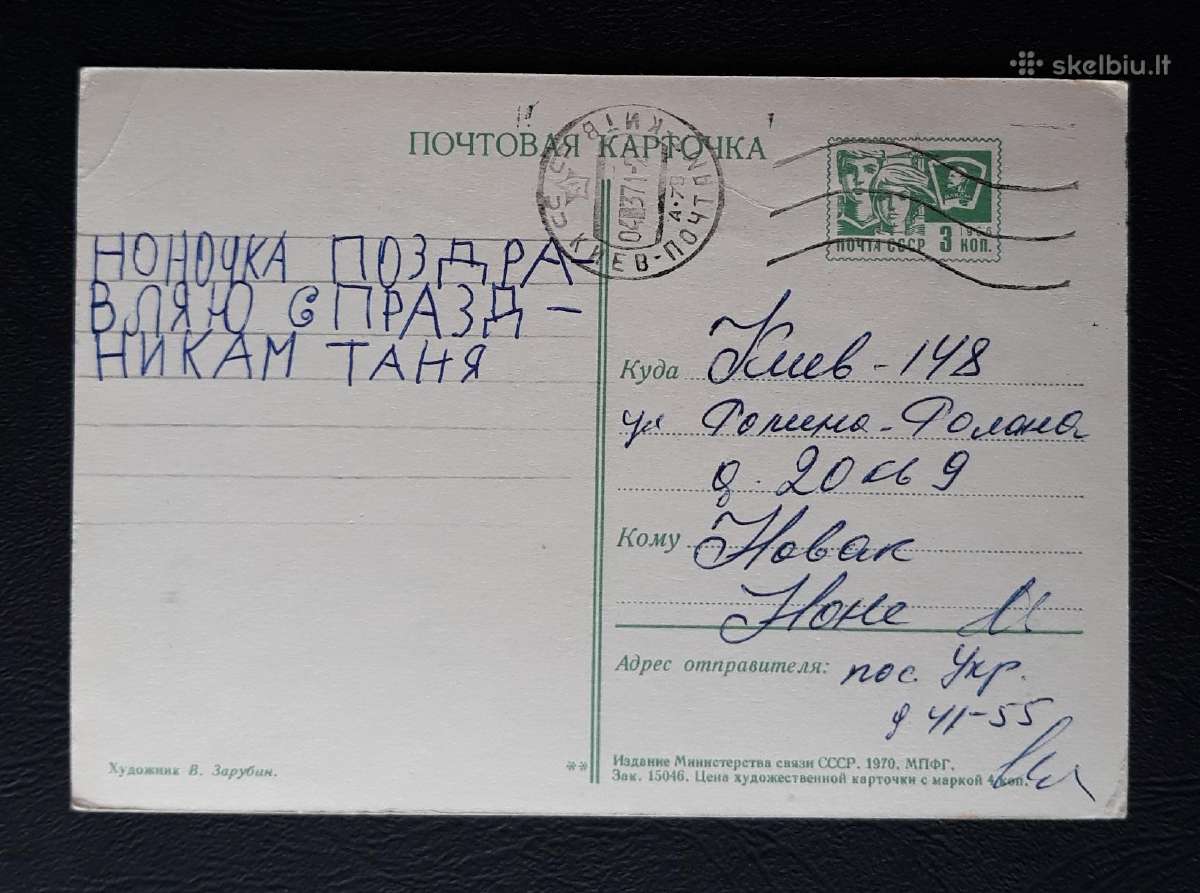 skelbiu.lt
ПОЧТОВАЯ КАРТОЧКА
КИЇВ
КИЕВ-ПОЧТАМТ
ПОЧТА СССР 3 КОП.
1966
НОНОЧКА ПОЗДРА-
ВЛЯЮ С ПРАЗД-
НИКАМ ТАНЯ
Куда Киев-148
ул Ромена-Ролана
д. 20 кв 9
Кому Новак
Ноне М
Адрес отправителя: пос. Укр.
д 41-55
Художник В. Зарубин.
**
Издание Министерства связи СССР. 1970. МПФГ.
Зак. 15046. Цена художественной карточки с маркой 4 коп.